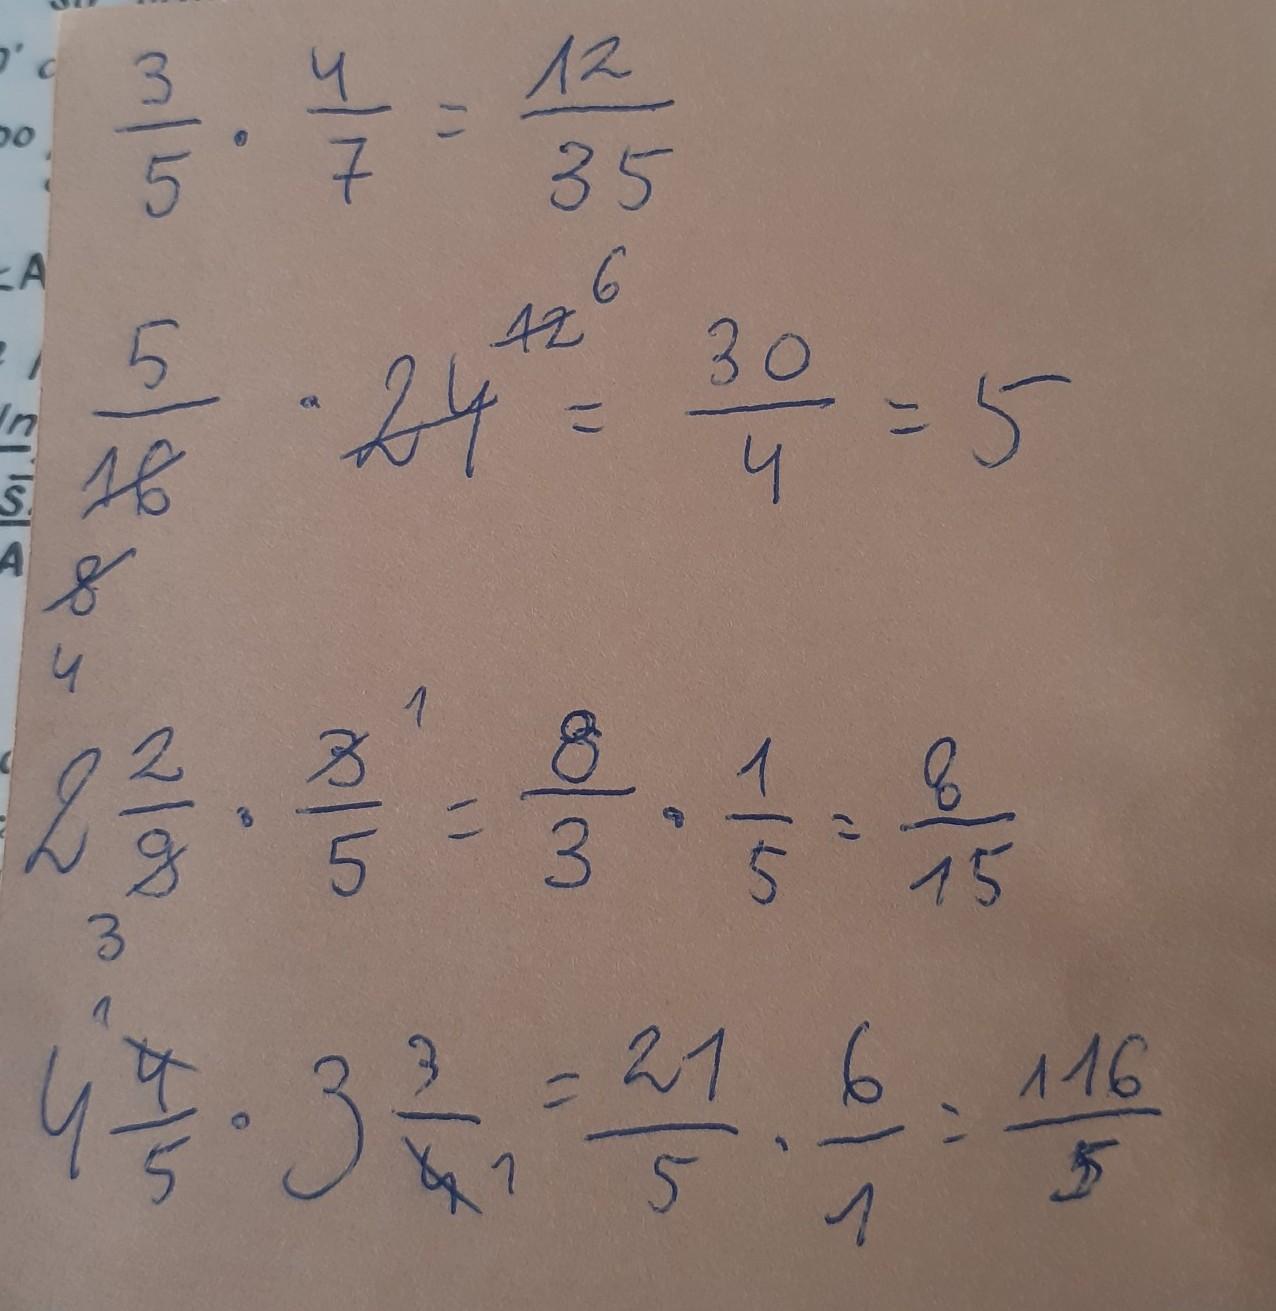 3/5 · 4/7 = 12/35
5/16 · 24 12 6 = 30/4 = 5
8
4
2 2/9 · 3/5 1 = 8/3 · 1/5 = 8/15
3
1
4 4/5 · 3 3/4 1 = 21/5 · 6/1 = 116/5